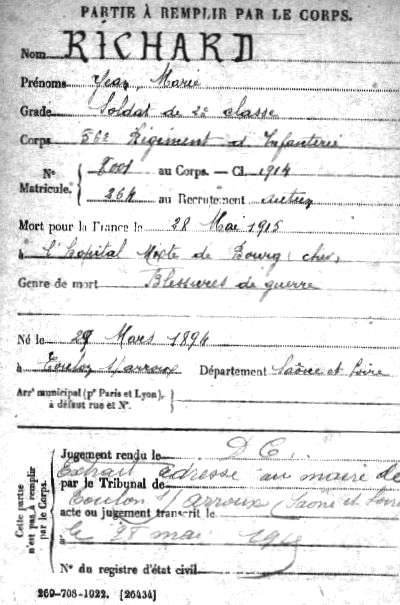 PARTIE À REMPLIR PAR LE CORPS.
Nom RICHARD
Prénoms Jean, Marie
Grade Soldat de 2e classe
Corps 56e Régiment d'Infanterie
N° Matricule. { 8001 au Corps. — Cl. 1914
264 au Recrutement Autun
Mort pour la France le 28 Mai 1915
à l'hopital Mixte de Bourg (cher)
Genre de mort Blessures de guerre
Né le 29 Mars 1894
à Toulon s/arroux Département Saône et Loire
Arrt municipal (pr Paris et Lyon), à défaut rue et N°. }
Cette partie n'est pas à remplir par le Corps.
Jugement rendu le D C.
Extrait adressé au maire de
par le Tribunal de
Toulon s/ Arroux (Saône et Loire
acte ou jugement transcrit le
le 28 mai
N° du registre d'état civil
269-708-1022. [26434]